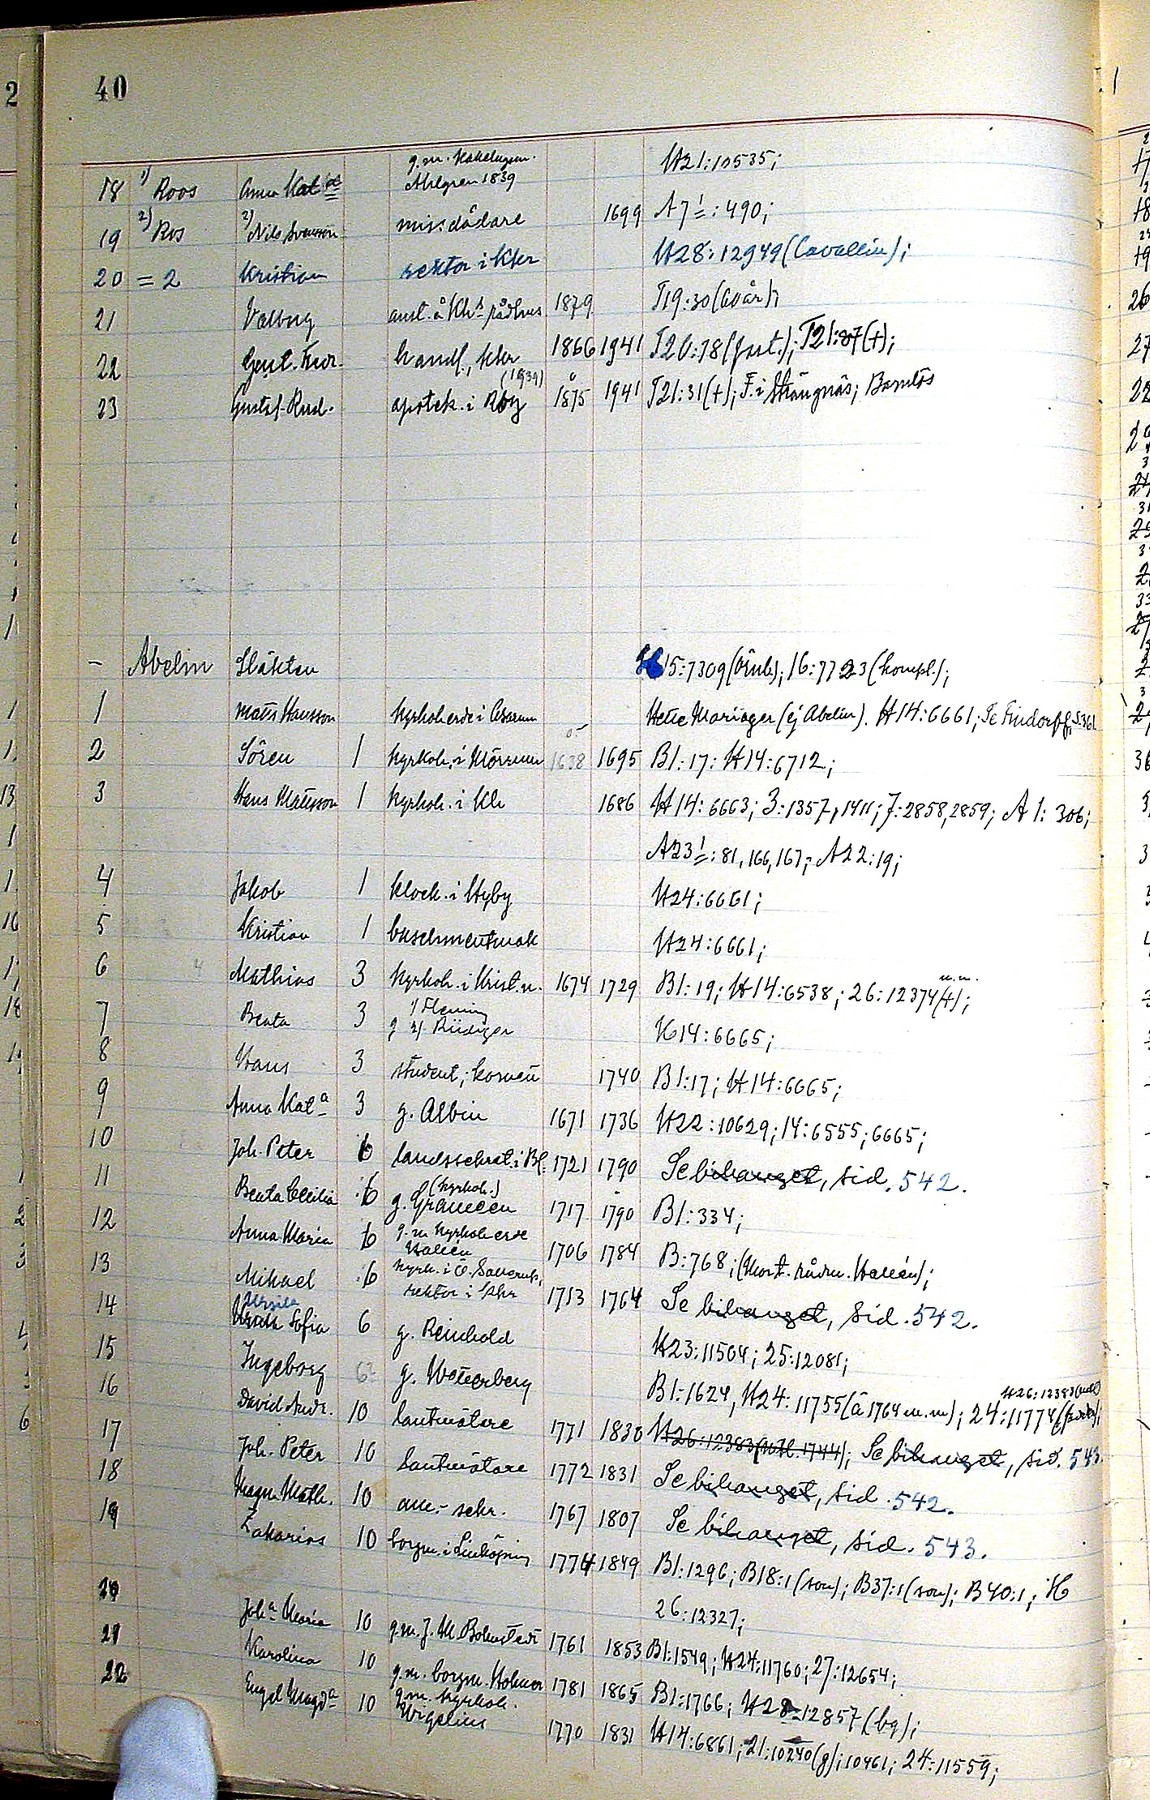 40
18 1) Roos Anna Kat:a g.m. Kakelugnm. Ahlgren 1839 H21:10535;
19 2) Ros 2) Nils Svensson missdådare 1699 A7!:490;
20 = 2 Kristian rektor i Khr H28:12949 (Cavallin);
21 Valborg anst. å Kh:s rådhus 1879 T19:30 (60 år);
22 Gust. Fredr. handl., Khr 1866 1941 T20:78 (fust.); T21:87(+);
23 Gustaf Rud. apotek. i Rby (1939) 1875 1941 T21:31(+); F. i Strängnäs;
– Abelin Släkten H15:7309 (Örnb); 16:7723 (kompl.);
1 Mats Hansson kyrkoherde i Asarum Hette Mariager (ej Abelin). H14:6661; Se Lindorff, s. 361
2 Sören 1 kyrkoh. i Mörrum 1638 1695 B1:17: H14:6712;
3 Hans Matsson 1 kyrkoh. i Kh 1686 H14:6663; 3:1357, 1411; 7:2858, 2859; A1:306;
A23!:81, 166, 167; A22:19;
4 Jakob 1 klock. i Hyby H24:6661;
5 Kristian 1 buschmentmak H24:6661;
6 Mathias 3 kyrkoh. i Krist.n. 1674 1729 B1:19; H14:6538; 26:12374(+) m.m.;
7 Beata 3 g 1) Fleming 2) Rüdiger H14:6665;
8 Hans 3 student; kornett 1740 B1:17; H14:6665;
9 Anna Kat:a 3 g. Albin 1671 1736 H22:10629; 14:6555; 6665;
10 Joh. Peter 6 landssekret. i Bl. 1721 1790 Se bihanget, sid. 542.
11 Beata Cecilia 6 g. (kyrkoh.) Granden 1717 1790 B1:334;
12 Anna Maria 6 g.m. kyrkoherde Hallén 1706 1784 B:768; (Kort. rådm. Halléns);
13 Mikael 6 kyrk. i Ö. Sallerup, rektor i Khr 1713 1764 Se bihanget, sid. 542.
14 Ursila Sofia 6 g. Reinhold H23:11504; 25:12081;
15 Ingeborg 6? g. Wetterberg B1:1624, H24:11755 (å 1764 m.m); 24:11774
16 David Andr. 10 lantmätare 1771 1830 H26:12383 (utl. 1744); Se bihanget, sid. 543.
17 Joh. Peter 10 lantmätare 1772 1831 Se bihanget, sid. 542.
18 Magn. Math. 10 1767 1807 Se bihanget, sid. 543.
19 Zakarias 10 borgm. i Linköping 1774 1849 B1:1296; B18:1 (son); B37:1 (son); B40:1; H
26:12327;
20 Joh:a Maria 10 g.m. J. M. Bolmstedt 1761 1853 B1:1549; H24:11760; 27:12654;
21 Karolina 10 g.m. borgm. Holmer 1781 1865 B1:1766; H28:12857 (bg);
22 Engel Magd:a 10 g.m. kyrkoh. Wigelius 1770 1831 H14:6861; 21:10240(g); 10461; 24:11559;